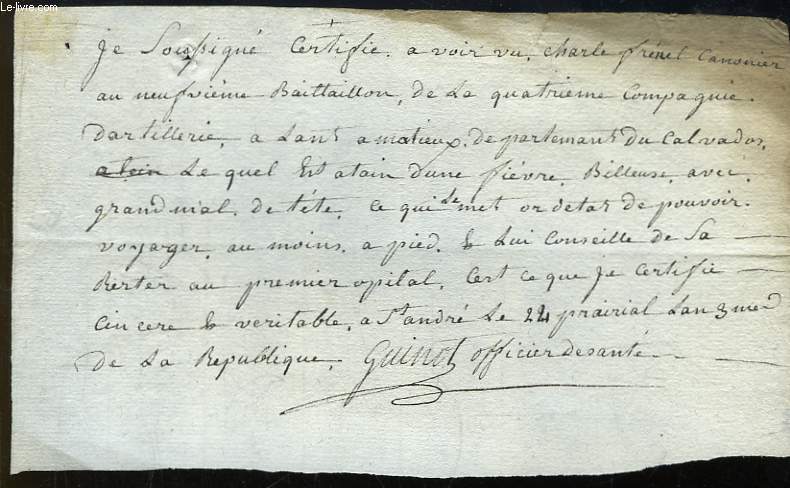 Le-livre.com
je Soussigné Certifie. a voir vu, charle frénel Canonier
au neufvième Baittaillon, de La quatrieme Compagnie.
Dartillerie, a Lant a matieux, departemant du Calvados,
Le quel Est atain dune fiévre. Billeuse, avec
grand mal. de téte, ce qui le met or detat de pouvoir.
voyager, au moins. a pied, & Lui Conseille de Sa
Rerter au premier opital, Cest ce que je Certifie
Cincere & veritable, a St andré Le 24 prairial Lan 3me
de La Republique. Guinot officier desanté